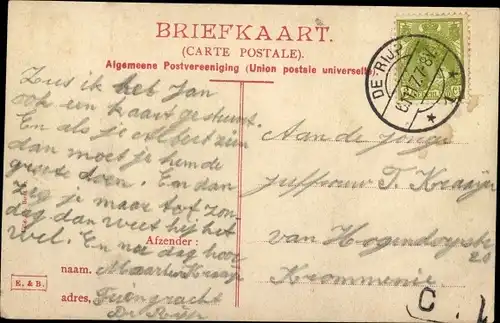 BRIEFKAART.
(CARTE POSTALE).
Algemeene Postvereeniging (Union postale universelle).
DE-RIJP
Zus ik het Jan
ook een kaart gestuurt.
En als je Albert zien
dan moet je hem de
groete doen. En dan
zeg je maar tot zon-
dag dan weet hij het
wel. En nu dag hoor
Aan de jonge
juffrouw T. Kraaij
van Hogendorpstr
20
Krommenie
Afzender:
naam. Maarten Kraaij
adres, Tuingracht
De Rijp
E. & B.
C